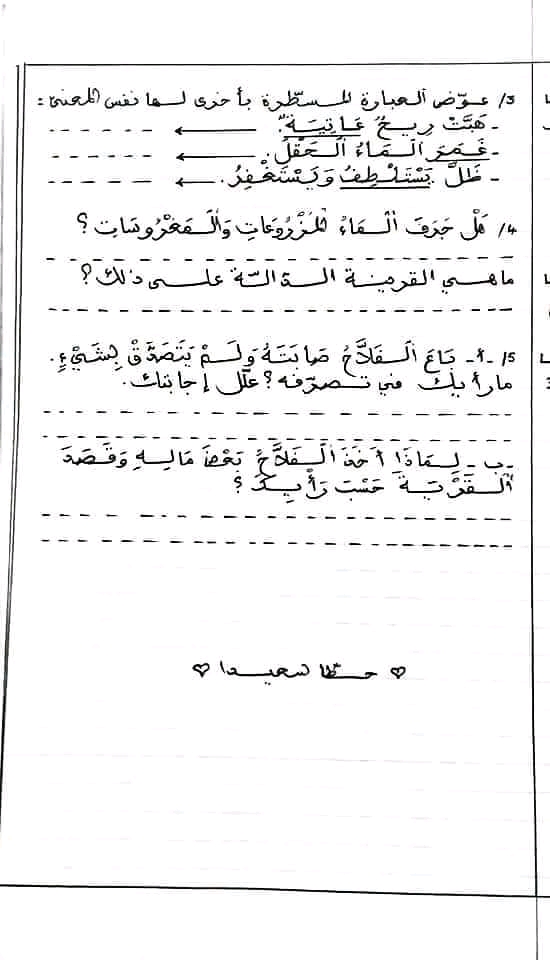 3/ عوّض العبارة المسطّرة بأخرى لها نفس المعنى :
- هَبَّتْ رِيحٌ عَاتِيَةٌ. ← - - - - - -
- غَمَرَ الْمَاءُ الْحَقْلَ. ← - - - - - -
- ظَلَّ يَسْتَلْطِفُ وَيَسْتَغْفِرُ. ← - - - - - -
4/ هَلْ جَرَفَ الْمَاءُ الْمَزْرُوعَاتِ وَالْمَغْرُوسَاتِ ؟
ما هي القرينة الدالّة على ذلك ؟
5/ -أ- بَاعَ الْفَلاَّحُ صَابَتَهُ وَلَمْ يَتَصَدَّقْ بِشَيْءٍ.
ما رأيك في تصرّفه ؟ علّل إجابتك.
-ب- لِمَاذَا أَخَذَ الْفَلاَّحُ بَعْضَ مَالِهِ وَقَصَدَ
الْقَرْيَةَ حَسْبَ رَأْيِكَ ؟
♡ حظّا سعيدا ♡